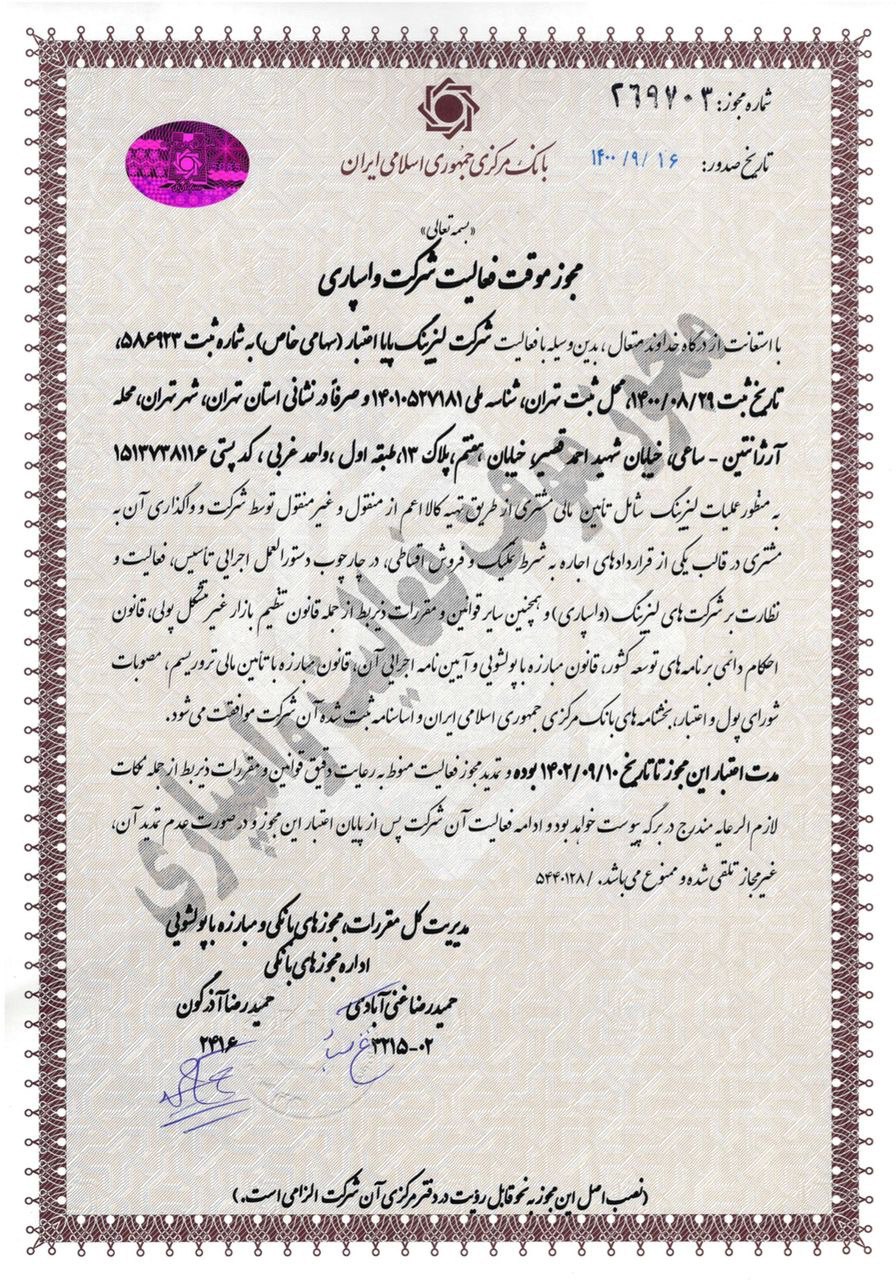 شماره مجوز: ۲۶۹۷۰۳
تاریخ صدور: ۱۴۰۰/۹/۱۶
بانک مرکزی جمهوری اسلامی ایران
«بسمه تعالی»
مجوز موقت فعالیت شرکت واسپاری
با استعانت از درگاه خداوند متعال، بدین وسیله با فعالیت شرکت لیزینگ پایا اعتبار (سهامی خاص) به شماره ثبت ۵۸۶۹۲۳،
تاریخ ثبت ۱۴۰۰/۰۸/۲۹، محل ثبت تهران، شناسه ملی ۱۴۰۱۰۵۲۷۱۸۱ و صرفاً در نشانی استان تهران، شهر تهران، محله
آرژانتین - ساعی، خیابان شهید احمد قصیر، خیابان هفتم، پلاک ۱۳، طبقه اول، واحد غربی، کد پستی ۱۵۱۳۷۳۸۱۱۶
به منظور عملیات لیزینگ شامل تأمین مالی مشتری از طریق تهیه کالا اعم از منقول و غیرمنقول توسط شرکت و واگذاری آن به
مشتری در قالب یکی از قراردادهای اجاره به شرط تملیک و فروش اقساطی، در چارچوب دستورالعمل اجرایی تأسیس، فعالیت و
نظارت بر شرکت های لیزینگ (واسپاری) و همچنین سایر قوانین و مقررات ذیربط از جمله قانون تنظیم بازار غیرمتشکل پولی، قانون
احکام دائمی برنامه های توسعه کشور، قانون مبارزه با پولشویی و آیین نامه اجرایی آن، قانون مبارزه با تأمین مالی تروریسم، مصوبات
شورای پول و اعتبار، بخشنامه های بانک مرکزی جمهوری اسلامی ایران و اساسنامه ثبت شده آن شرکت موافقت می شود.
مدت اعتبار این مجوز تا تاریخ ۱۴۰۲/۰۹/۱۰ بوده و تمدید مجوز فعالیت منوط به رعایت دقیق قوانین و مقررات ذیربط از جمله نکات
لازم الرعایه مندرج در برگه پیوست خواهد بود و ادامه فعالیت آن شرکت پس از پایان اعتبار این مجوز و در صورت عدم تمدید آن،
غیرمجاز تلقی شده و ممنوع می باشد. /۵۴۴۰۱۲۸
مدیریت کل مقررات، مجوزهای بانکی و مبارزه با پولشویی
اداره مجوزهای بانکی
حمیدرضا غنی آبادی حمیدرضا آذرگون
۳۲۱۵-۰۲ ۲۴۱۶
(نصب اصل این مجوز به نحو قابل رؤیت در دفتر مرکزی آن شرکت الزامی است.)
مجوز موقت فعالیت واسپاری